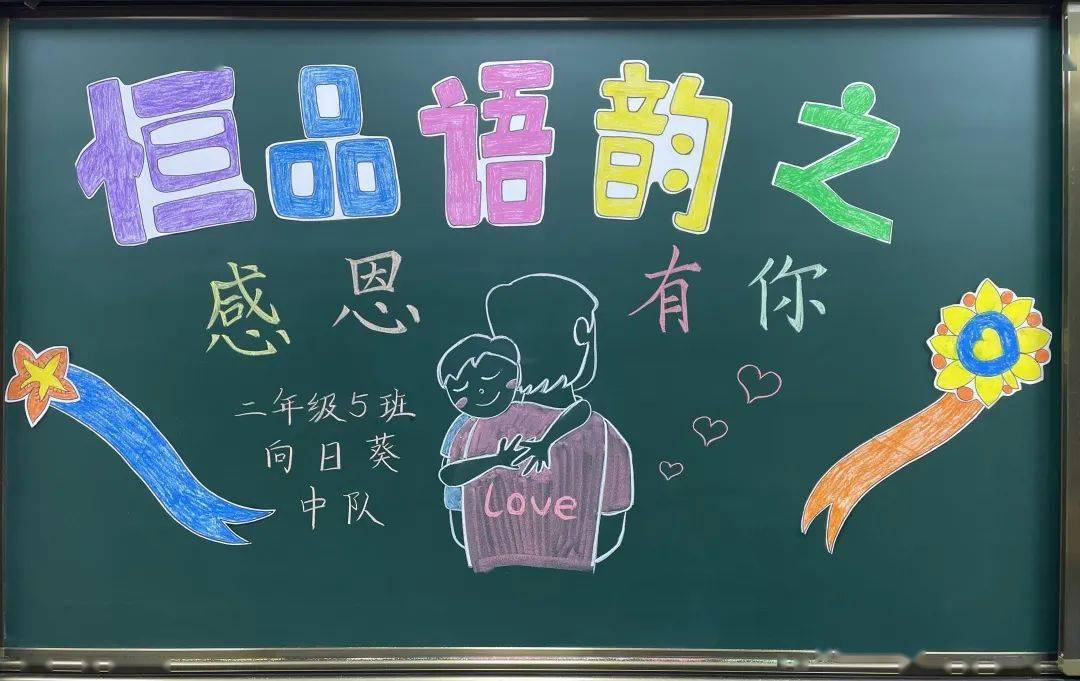 恒品语韵之
感恩有你
二年级5班
向日葵
中队
Love